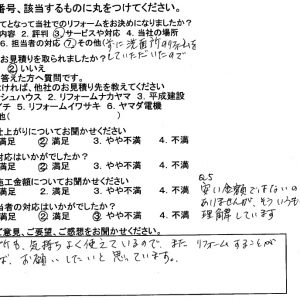 番号、該当するものに丸をつけてください。
てとなって当社でのリフォームをお決めになりましたか?
内容 2. 評判 ③サービスや対応 4. 当社の場所
6. 担当者の対応 ⑦その他(
していただいたので
お見積りを取られましたか?
②いいえ
答えた方へ質問です。
ければ、他社のお見積り先を教えてください
シュハウス 2. リフォームナカヤマ 3. 平成建設
イチ 5. リフォームイワサキ 6. ヤマダ電機
他(
仕上がりについてお聞かせください
満足 ②満足 3. やや不満 4. 不満
対応はいかがでしたか?
満足 ②満足 3. やや不満 4. 不満
施工金額についてお聞かせください
満足 2. 満足 ③やや不満 4. 不満
Q.5
安い金額ではないの
ありませんが、そういうも
理解しています
当者の対応はいかがでしたか?
満足 ②満足 ③やや不満 4. 不満
ご意見、ご要望、ご感想をお聞かせください
所も、気持ちよく使えているので、また リフォームすることが
ば、お願いしたいと思っています。